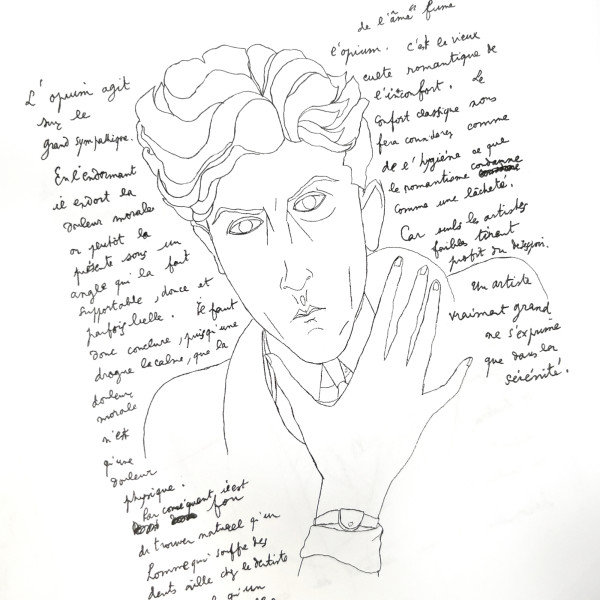 L'opium agit
sur le
grand sympathique.
En l'endormant
il endort la
douleur morale
ou plutôt la
présente sous un
angle qui la fait
supportable, douce et
parfois belle. Il faut
donc conclure, puisqu'une
drogue la calme, que la
douleur
morale
n'est
qu'une
douleur
physique.
Par conséquent, il est
fou
de trouver naturel qu'un
homme qui souffre des
dents aille chez le dentiste
qu'un
de l'âme fume
l'opium. C'est le vieux
culte romantique de
l'inconfort. Le
confort classique nous
fera considérer comme
de l'hygiène ce que
le romantisme condamne
comme une lâcheté.
Car seuls les artistes
faibles tirent
profit du
Un artiste
vraiment grand
ne s'exprime
que dans la
sérénité.